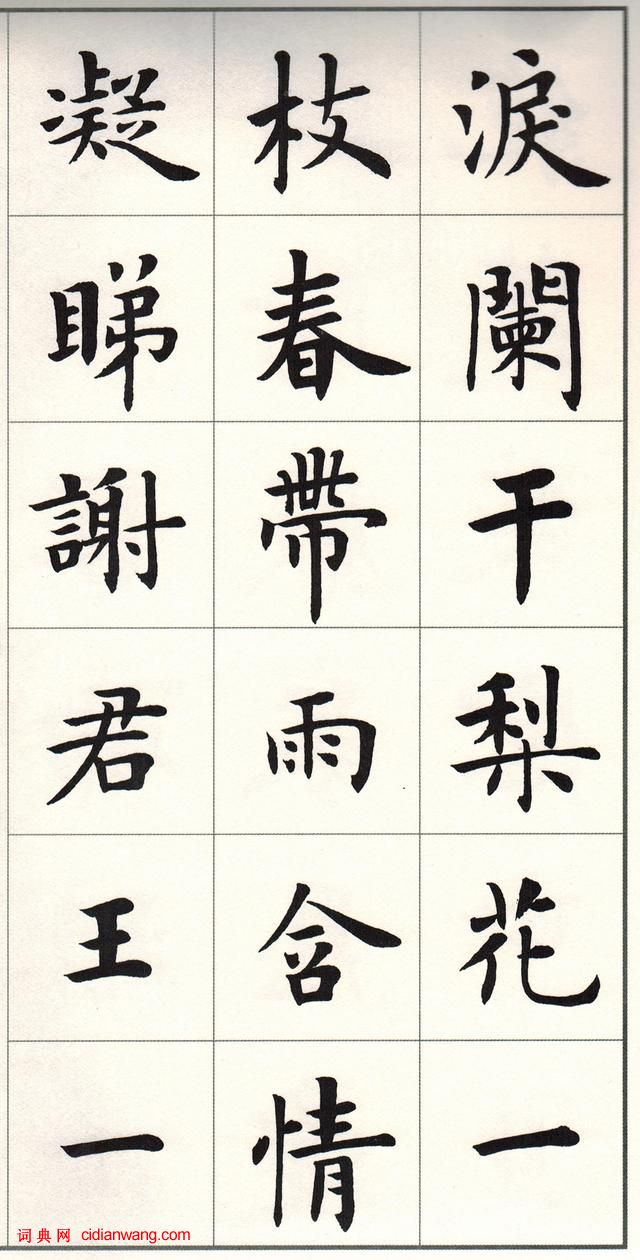 淚闌干梨花一
枝春帶雨含情
凝睇謝君王一
词典网 cidianwang.com